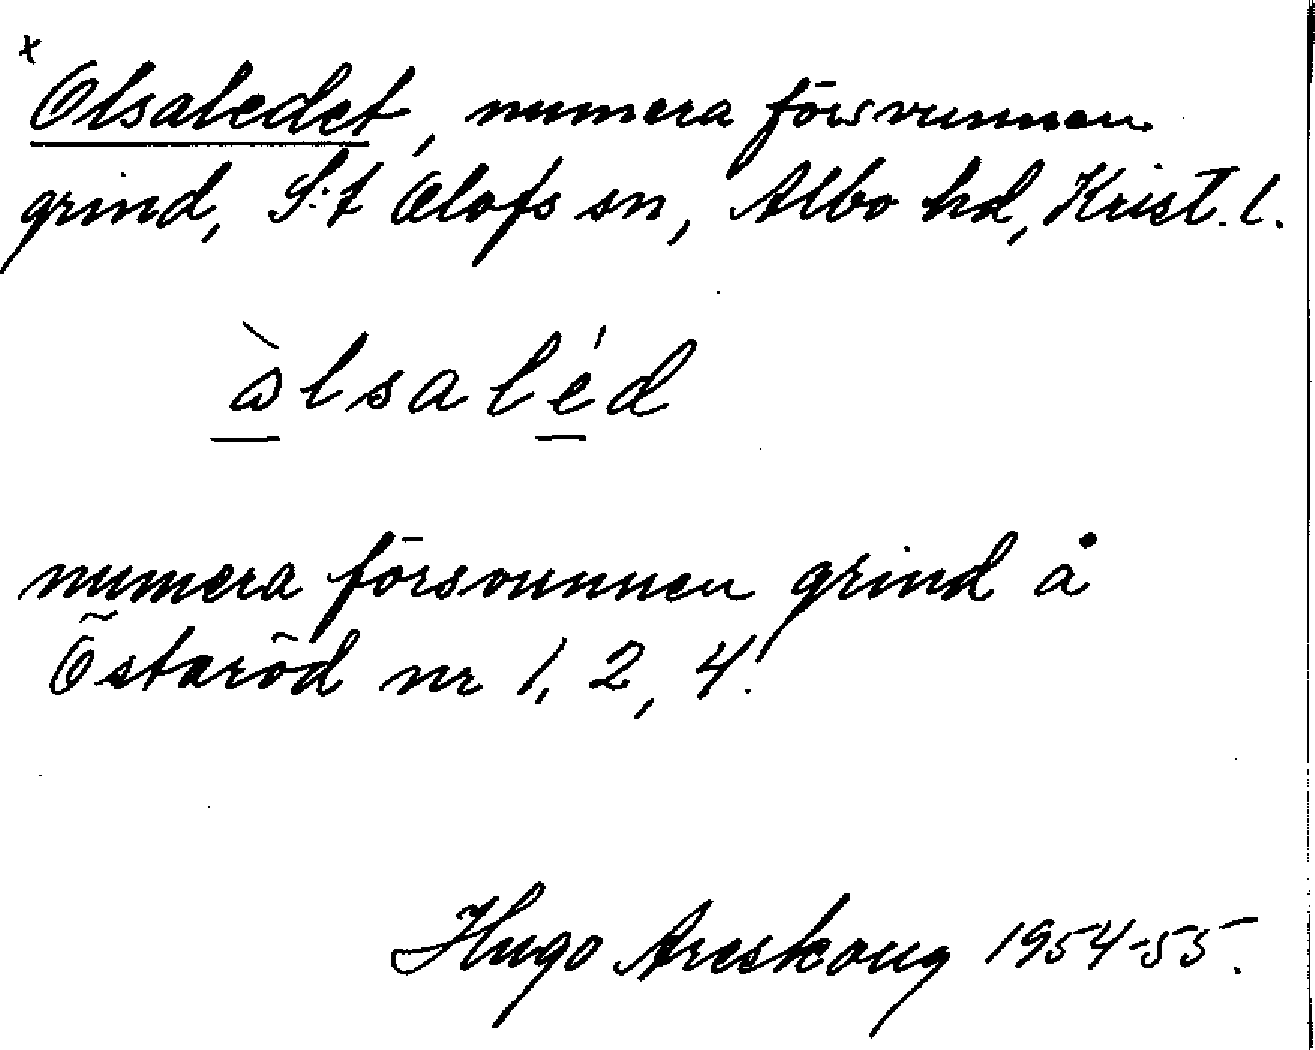 x
Olsaledet, numera försvunnen
grind, S:t Olofs sn, Albo hd, Krist. l.
àlsaléd
numera försvunnen grind å
Östaröd nr 1, 2, 4.
Hugo Areskoug 1954-55.